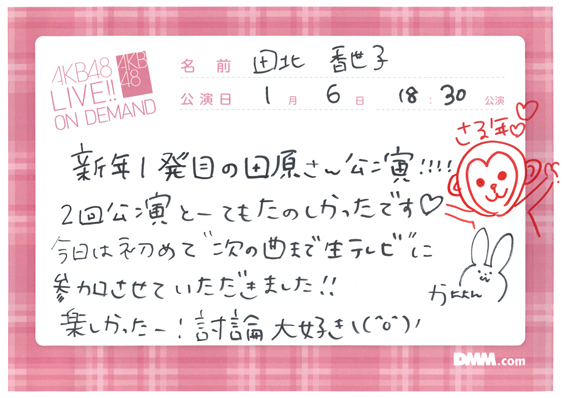 AKB48
LIVE!!
ON DEMAND
AKB
48
名前 田北 香世子
公演日 1月 6日 18:30 公演
さる年♡
新年1発目の田原さん公演!!!!
2回公演とーてもたのしかったです♡
今日は初めて"次の曲まで生テレビ"に
参加させていただきました!!
楽しかったー!討論大好き\(^o^)/
DMM.com